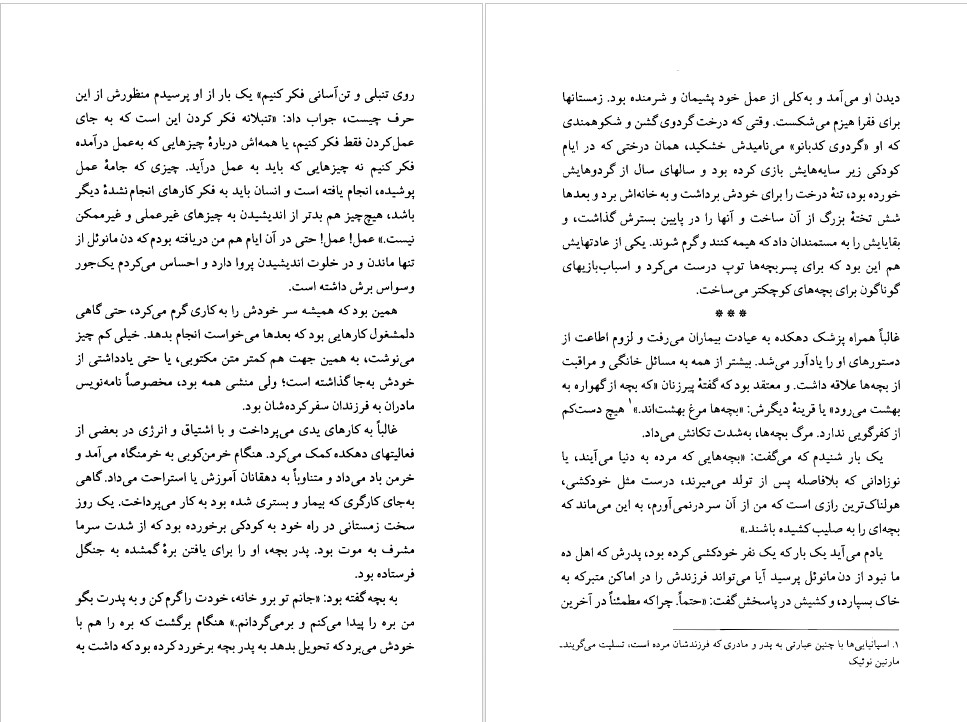 دیدن او می‌آمد و به‌کلی از عمل خود پشیمان و شرمنده بود. زمستانها
برای فقرا هیزم می‌شکست. وقتی که درخت گردوی گشن و شکوهمندی
که او «گردوی کدبانو» می‌نامیدش خشکید، همان درختی که در ایام
کودکی زیر سایه‌هایش بازی کرده بود و سالهای سال از گردوهایش
خورده بود، تنهٔ درخت را برای خودش برداشت و به خانه‌اش برد و بعدها
شش تختهٔ بزرگ از آن ساخت و آنها را در پایین بسترش گذاشت، و
بقایایش را به مستمندان داد که هیمه کنند و گرم شوند. یکی از عادتهایش
هم این بود که برای پسربچه‌ها توپ درست می‌کرد و اسباب‌بازیهای
گوناگون برای بچه‌های کوچکتر می‌ساخت.
* * *
غالباً همراه پزشک دهکده به عیادت بیماران می‌رفت و لزوم اطاعت از
دستورهای او را یادآور می‌شد. بیشتر از همه به مسائل خانگی و مراقبت
از بچه‌ها علاقه داشت. و معتقد بود که گفتهٔ پیرزنان «که بچه از گهواره به
بهشت می‌رود» یا قرینهٔ دیگرش: «بچه‌ها مرغ بهشت‌اند.»۱ هیچ دست‌کم
از کفرگویی ندارد. مرگ بچه‌ها، به‌شدت تکانش می‌داد.
یک بار شنیدم که می‌گفت: «بچه‌هایی که مرده به دنیا می‌آیند، یا
نوزادانی که بلافاصله پس از تولد می‌میرند، درست مثل خودکشی،
هولناک‌ترین رازی است که من از آن سر درنمی‌آورم، به این می‌ماند که
بچه‌ای را به صلیب کشیده باشند.»
یادم می‌آید یک بار که یک نفر خودکشی کرده بود، پدرش که اهل ده
ما نبود از دن مانوئل پرسید آیا می‌تواند فرزندش را در اماکن متبرکه به
خاک بسپارد، و کشیش در پاسخش گفت: «حتماً. چرا که مطمئناً در آخرین
۱. اسپانیایی‌ها با چنین عبارتی به پدر و مادری که فرزندشان مرده است، تسلیت می‌گویند.ـ
مارتین نوئیک
روی تنبلی و تن‌آسانی فکر کنیم» یک بار از او پرسیدم منظورش از این
حرف چیست، جواب داد: «تنبلانه فکر کردن این است که به جای
عمل کردن فقط فکر کنیم، یا همه‌اش دربارهٔ چیزهایی که به‌عمل درآمده
فکر کنیم نه چیزهایی که باید به عمل درآید. چیزی که جامهٔ عمل
پوشیده، انجام یافته است و انسان باید به فکر کارهای انجام‌نشدهٔ دیگر
باشد، هیچ‌چیز هم بدتر از اندیشیدن به چیزهای غیرعملی و غیرممکن
نیست.» عمل! عمل! حتی در آن ایام هم من دریافته بودم که دن مانوئل از
تنها ماندن و در خلوت اندیشیدن پروا دارد و احساس می‌کردم یک‌جور
وسواس برش داشته است.
همین بود که همیشه سر خودش را به کاری گرم می‌کرد، حتی گاهی
دلمشغول کارهایی بود که بعدها می‌خواست انجام بدهد. خیلی کم چیز
می‌نوشت، به همین جهت هم کمتر متن مکتوبی، یا حتی یادداشتی از
خودش به‌جا گذاشته است؛ ولی منشی همه بود، مخصوصاً نامه‌نویس
مادران به فرزندان سفر کرده‌شان بود.
غالباً به کارهای یدی می‌پرداخت و با اشتیاق و انرژی در بعضی از
فعالیتهای دهکده کمک می‌کرد. هنگام خرمن‌کوبی به خرمنگاه می‌آمد و
خرمن باد می‌داد و متناوباً به دهقانان آموزش یا استراحت می‌داد. گاهی
به‌جای کارگری که بیمار و بستری شده بود به کار می‌پرداخت. یک روز
سخت زمستانی در راه خود به کودکی برخورده بود که از شدت سرما
مشرف به موت بود. پدر بچه، او را برای یافتن برهٔ گمشده به جنگل
فرستاده بود.
به بچه گفته بود: «جانم تو برو خانه، خودت را گرم کن و به پدرت بگو
من بره را پیدا می‌کنم و برمی‌گردانم.» هنگام برگشت که بره را هم با
خودش می‌برد که تحویل بدهد به پدر بچه برخورد کرده بود که داشت به